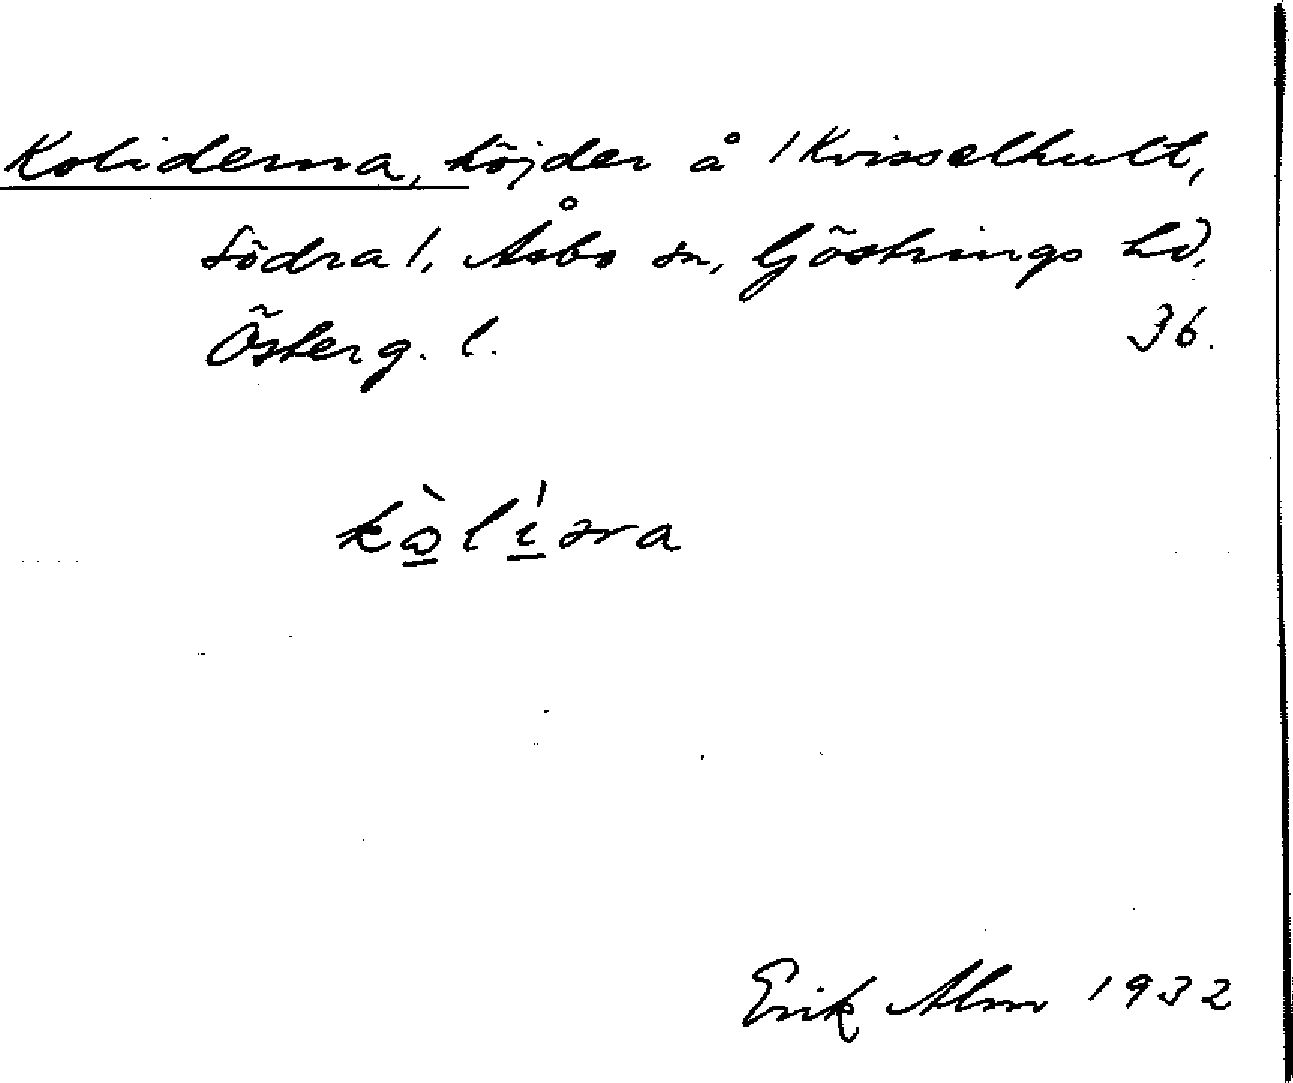 Koliderna, höjder å /Kvisselhult,
Södra/, Åsbo sn, Göstrings hd,
Österg. l. 36.
Erik Alm 1932